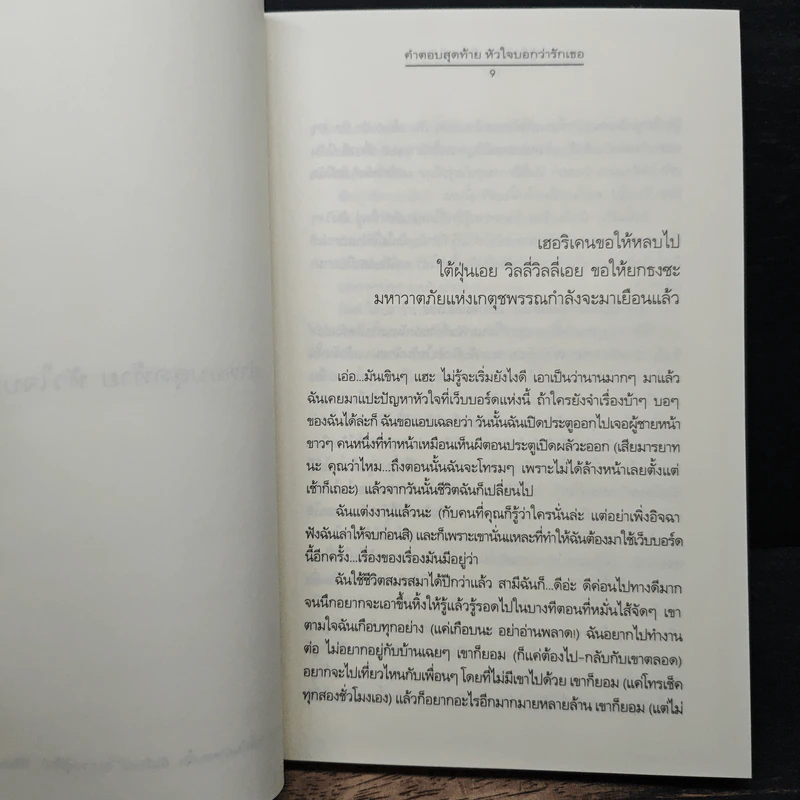 คำตอบสุดท้าย หัวใจบอกว่ารักเธอ
9
เฮอริเคนขอให้หลบไป
ใต้ฝุ่นเอย วิลลี่วิลลี่เอย ขอให้ยกธงซะ
มหาวาตภัยแห่งเกตุชพรรณกำลังจะมาเยือนแล้ว
เอ่อ...มันเขินๆ แฮะ ไม่รู้จะเริ่มยังไงดี เอาเป็นว่านานมากๆ มาแล้ว
ฉันเคยมาแปะปัญหาหัวใจที่เว็บบอร์ดแห่งนี้ ถ้าใครยังจำเรื่องบ้าๆ บอๆ
ของฉันได้ล่ะก็ ฉันขอแอบเฉลยว่า วันนั้นฉันเปิดประตูออกไปเจอผู้ชายหน้า
ขาวๆ คนหนึ่งที่ทำหน้าเหมือนเห็นผีตอนประตูเปิดผลัวะออก (เสียมารยาท
นะ คุณว่าไหม...ถึงตอนนั้นฉันจะโทรมๆ เพราะไม่ได้ล้างหน้าเลยตั้งแต่
เช้าก็เถอะ) แล้วจากวันนั้นชีวิตฉันก็เปลี่ยนไป
ฉันแต่งงานแล้วนะ (กับคนที่คุณก็รู้ว่าใครนั่นล่ะ แต่อย่าเพิ่งอิจฉา
ฟังฉันเล่าให้จบก่อนสิ) และก็เพราะเขานั่นแหละที่ทำให้ฉันต้องมาใช้เว็บบอร์ด
นี้อีกครั้ง...เรื่องของเรื่องมันมีอยู่ว่า
ฉันใช้ชีวิตสมรสมาได้ปีกว่าแล้ว สามีฉันก็...ดีอ่ะ ดีค่อนไปทางดีมาก
จนนึกอยากจะเอาขึ้นหิ้งให้รู้แล้วรู้รอดไปในบางทีตอนที่หมั่นไส้จัดๆ เขา
ตามใจฉันเกือบทุกอย่าง (แค่เกือบนะ อย่าอ่านพลาด!) ฉันอยากไปทำงาน
ต่อ ไม่อยากอยู่กับบ้านเฉยๆ เขาก็ยอม (ก็แค่ต้องไป-กลับกับเขาตลอด)
อยากจะไปเที่ยวไหนกับเพื่อนๆ โดยที่ไม่มีเขาไปด้วย เขาก็ยอม (แค่โทรเช็ค
ทุกสองชั่วโมงเอง) แล้วก็อยากอะไรอีกมากมายหลายล้าน เขาก็ยอม (แต่ไม่